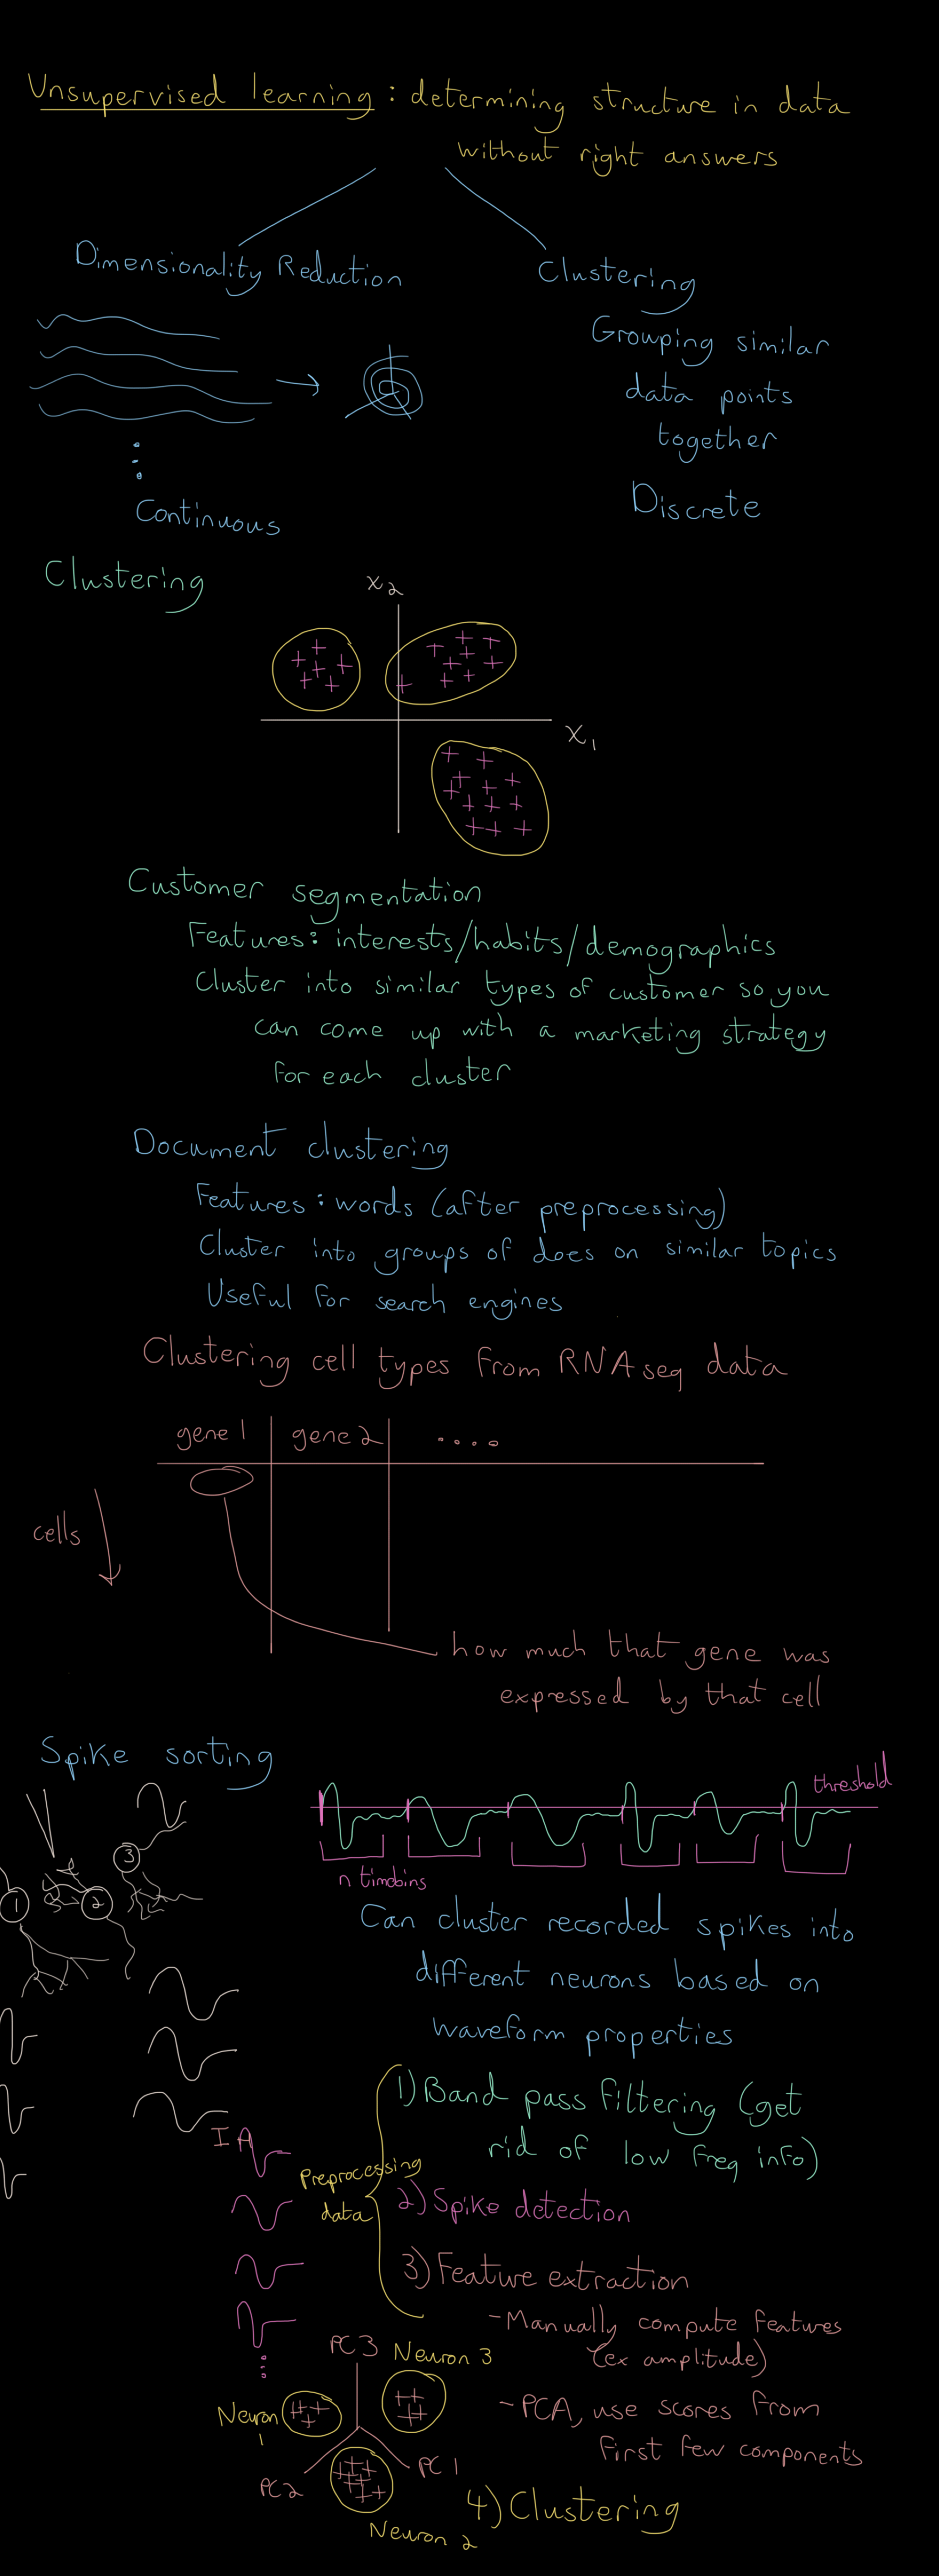 Unsupervised learning : determining structure in data
without right answers
Dimensionality Reduction
Clustering
Grouping similar
data points
together
Discrete
Continuous
Clustering
x2
x1
Customer segmentation
Features: interests/habits/demographics
Cluster into similar types of customer so you
can come up with a marketing strategy
for each cluster
Document clustering
Features : words (after preprocessing)
Cluster into groups of docs on similar topics
Useful for search engines
Clustering cell types from RNA seq data
gene 1 gene 2 ....
cells
how much that gene was
expressed by that cell
Spike sorting
threshold
n timbins
1
2
3
Can cluster recorded spikes into
different neurons based on
waveform properties
1) Band pass filtering (get
rid of low freq info)
Preprocessing
data
2) Spike detection
3) Feature extraction
- Manually compute features
(ex amplitude)
- PCA, use scores from
first few components
PC3
Neuron 3
Neuron
1
PC2
PC1
Neuron 2
4) Clustering